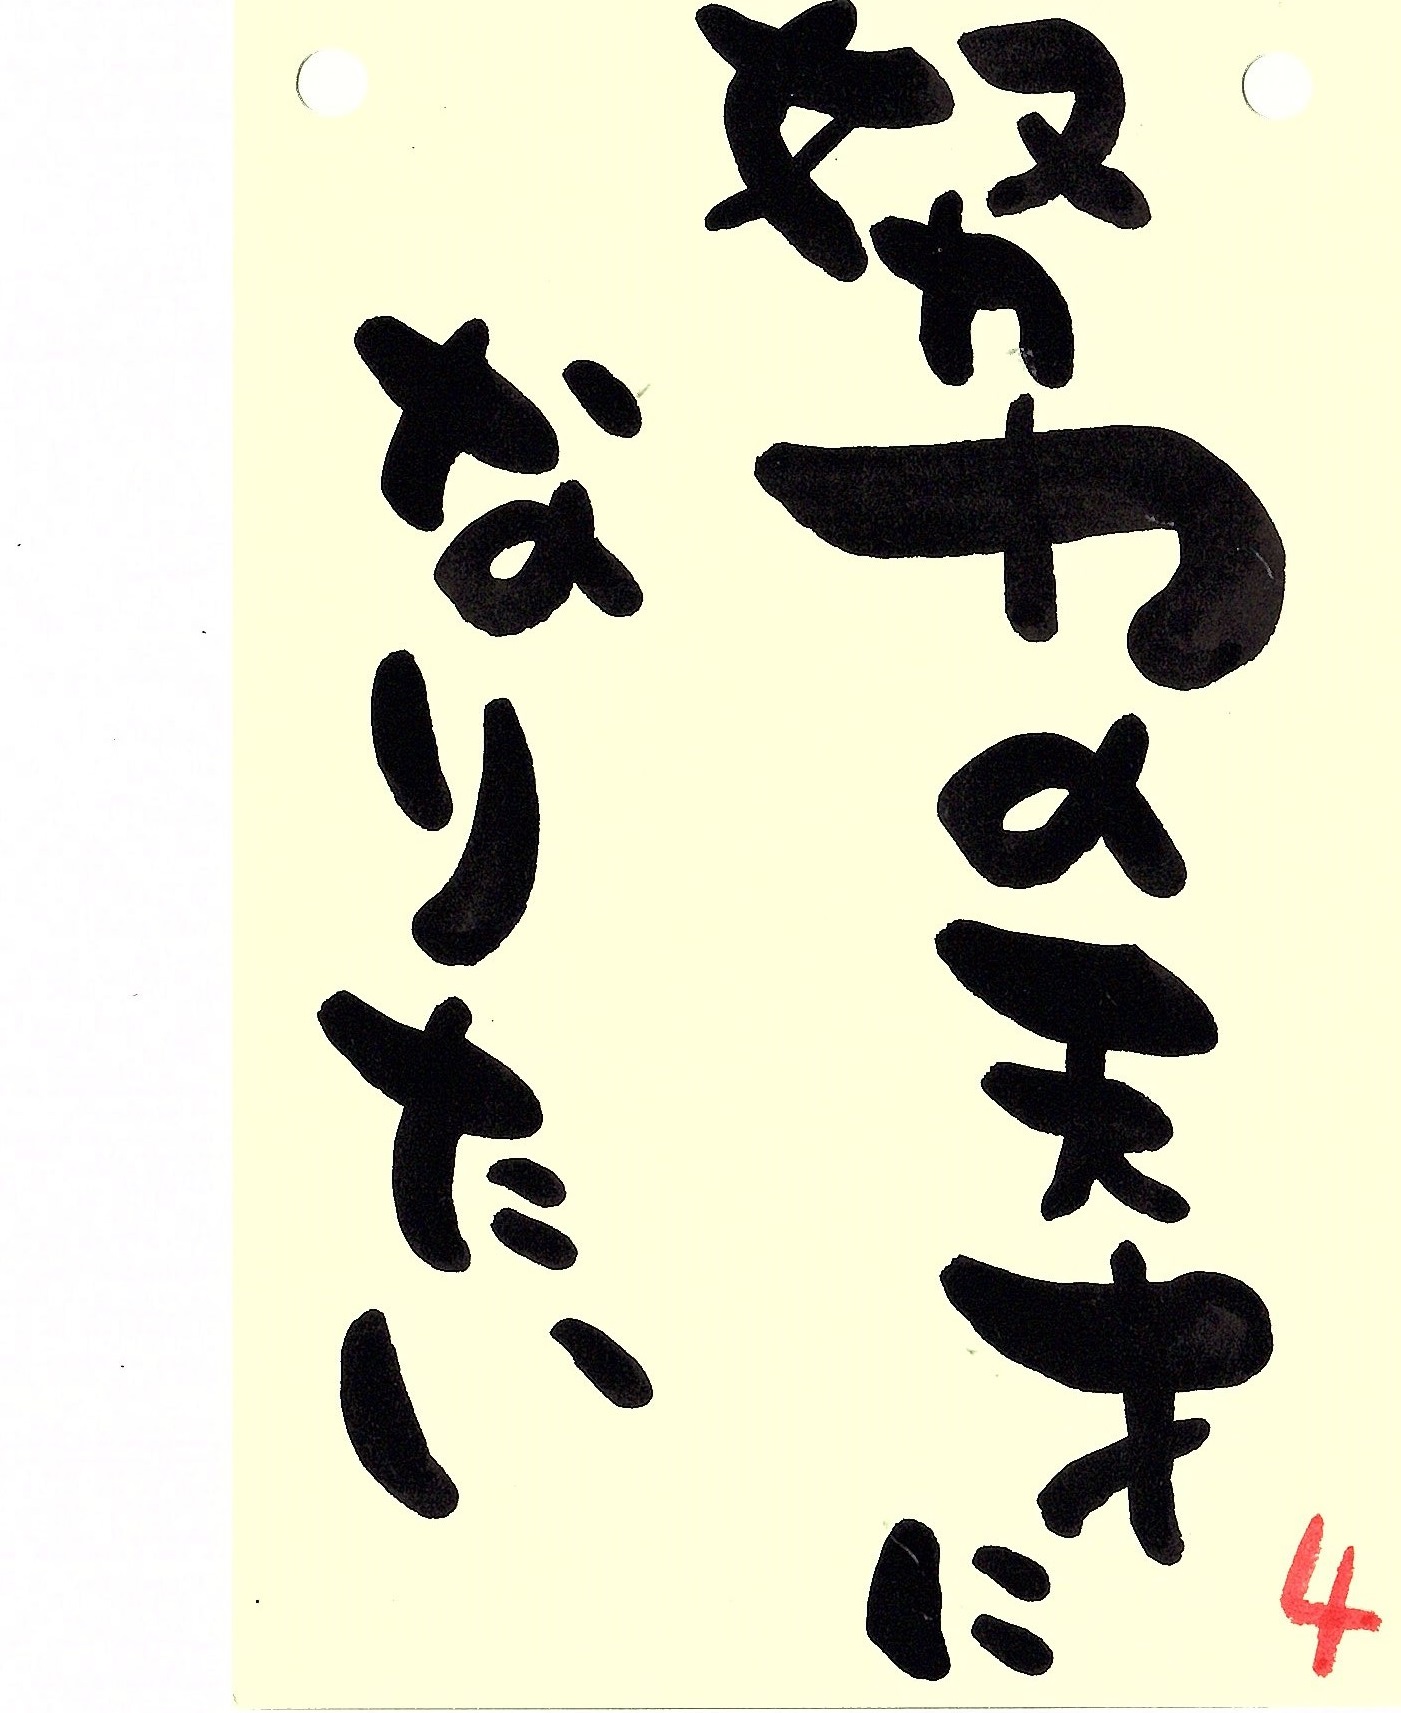 努力の天才に
なりたい
4